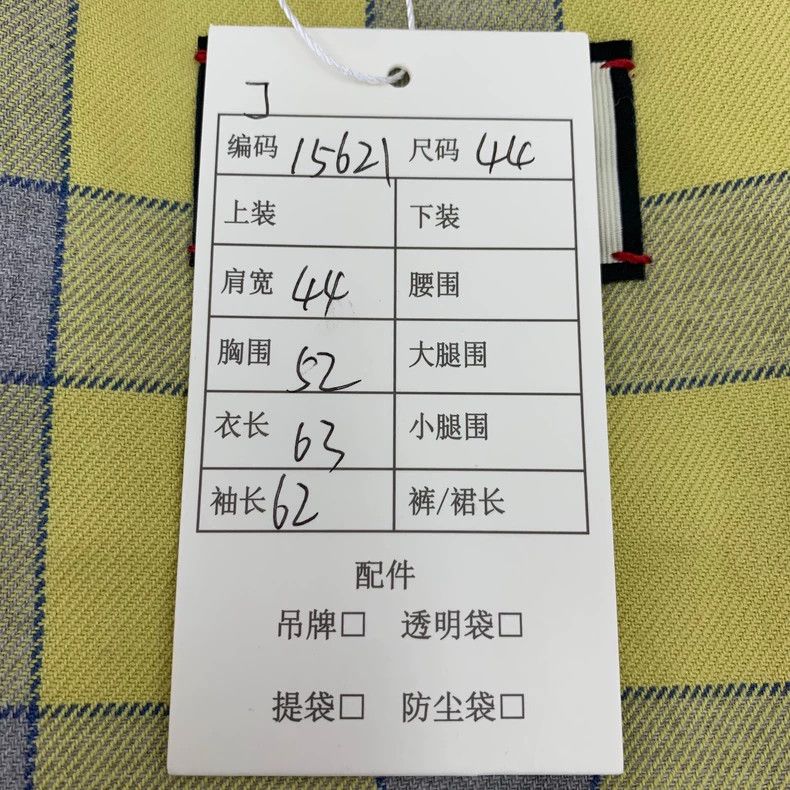 J
编码 15621 尺码 44
上装 下装
肩宽 44 腰围
胸围 52 大腿围
衣长 63 小腿围
袖长 62 裤/裙长
配件
吊牌□ 透明袋□
提袋□ 防尘袋□